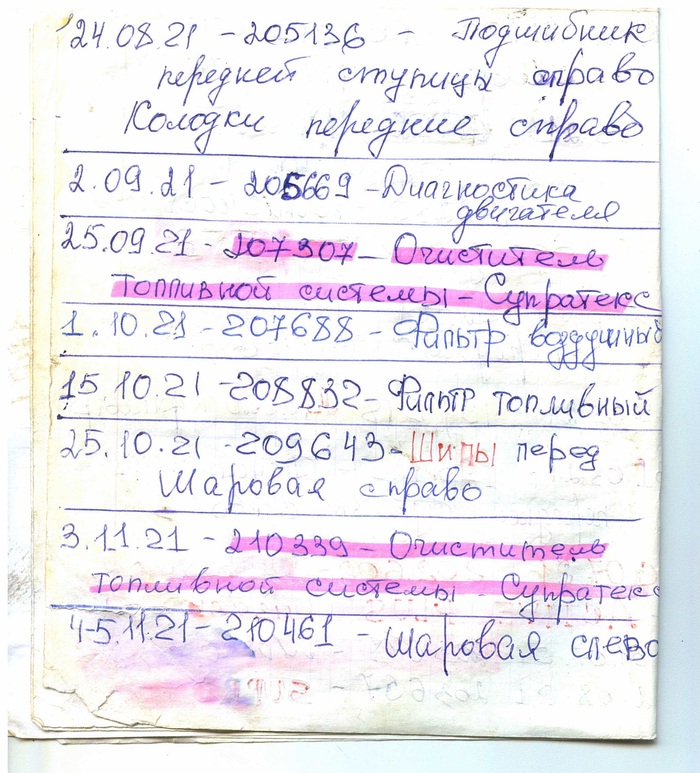 24.08.21 - 205136 - Подшибник
передней ступицы справо
Колодки передние справо
2.09.21 - 205669 - Диагностика
двигателя
25.09.21 - 207307 - Очиститель
топливной системы - Супратекс
1.10.21 - 207688 - Фильтр воздушный
15.10.21 - 208832 - Фильтр топливный
25.10.21 - 209643 - Шипы перед
Шаровая справо
3.11.21 - 210339 - Очиститель
топливной системы - Супратекс
4-5.11.21 - 210461 - Шаровая слево